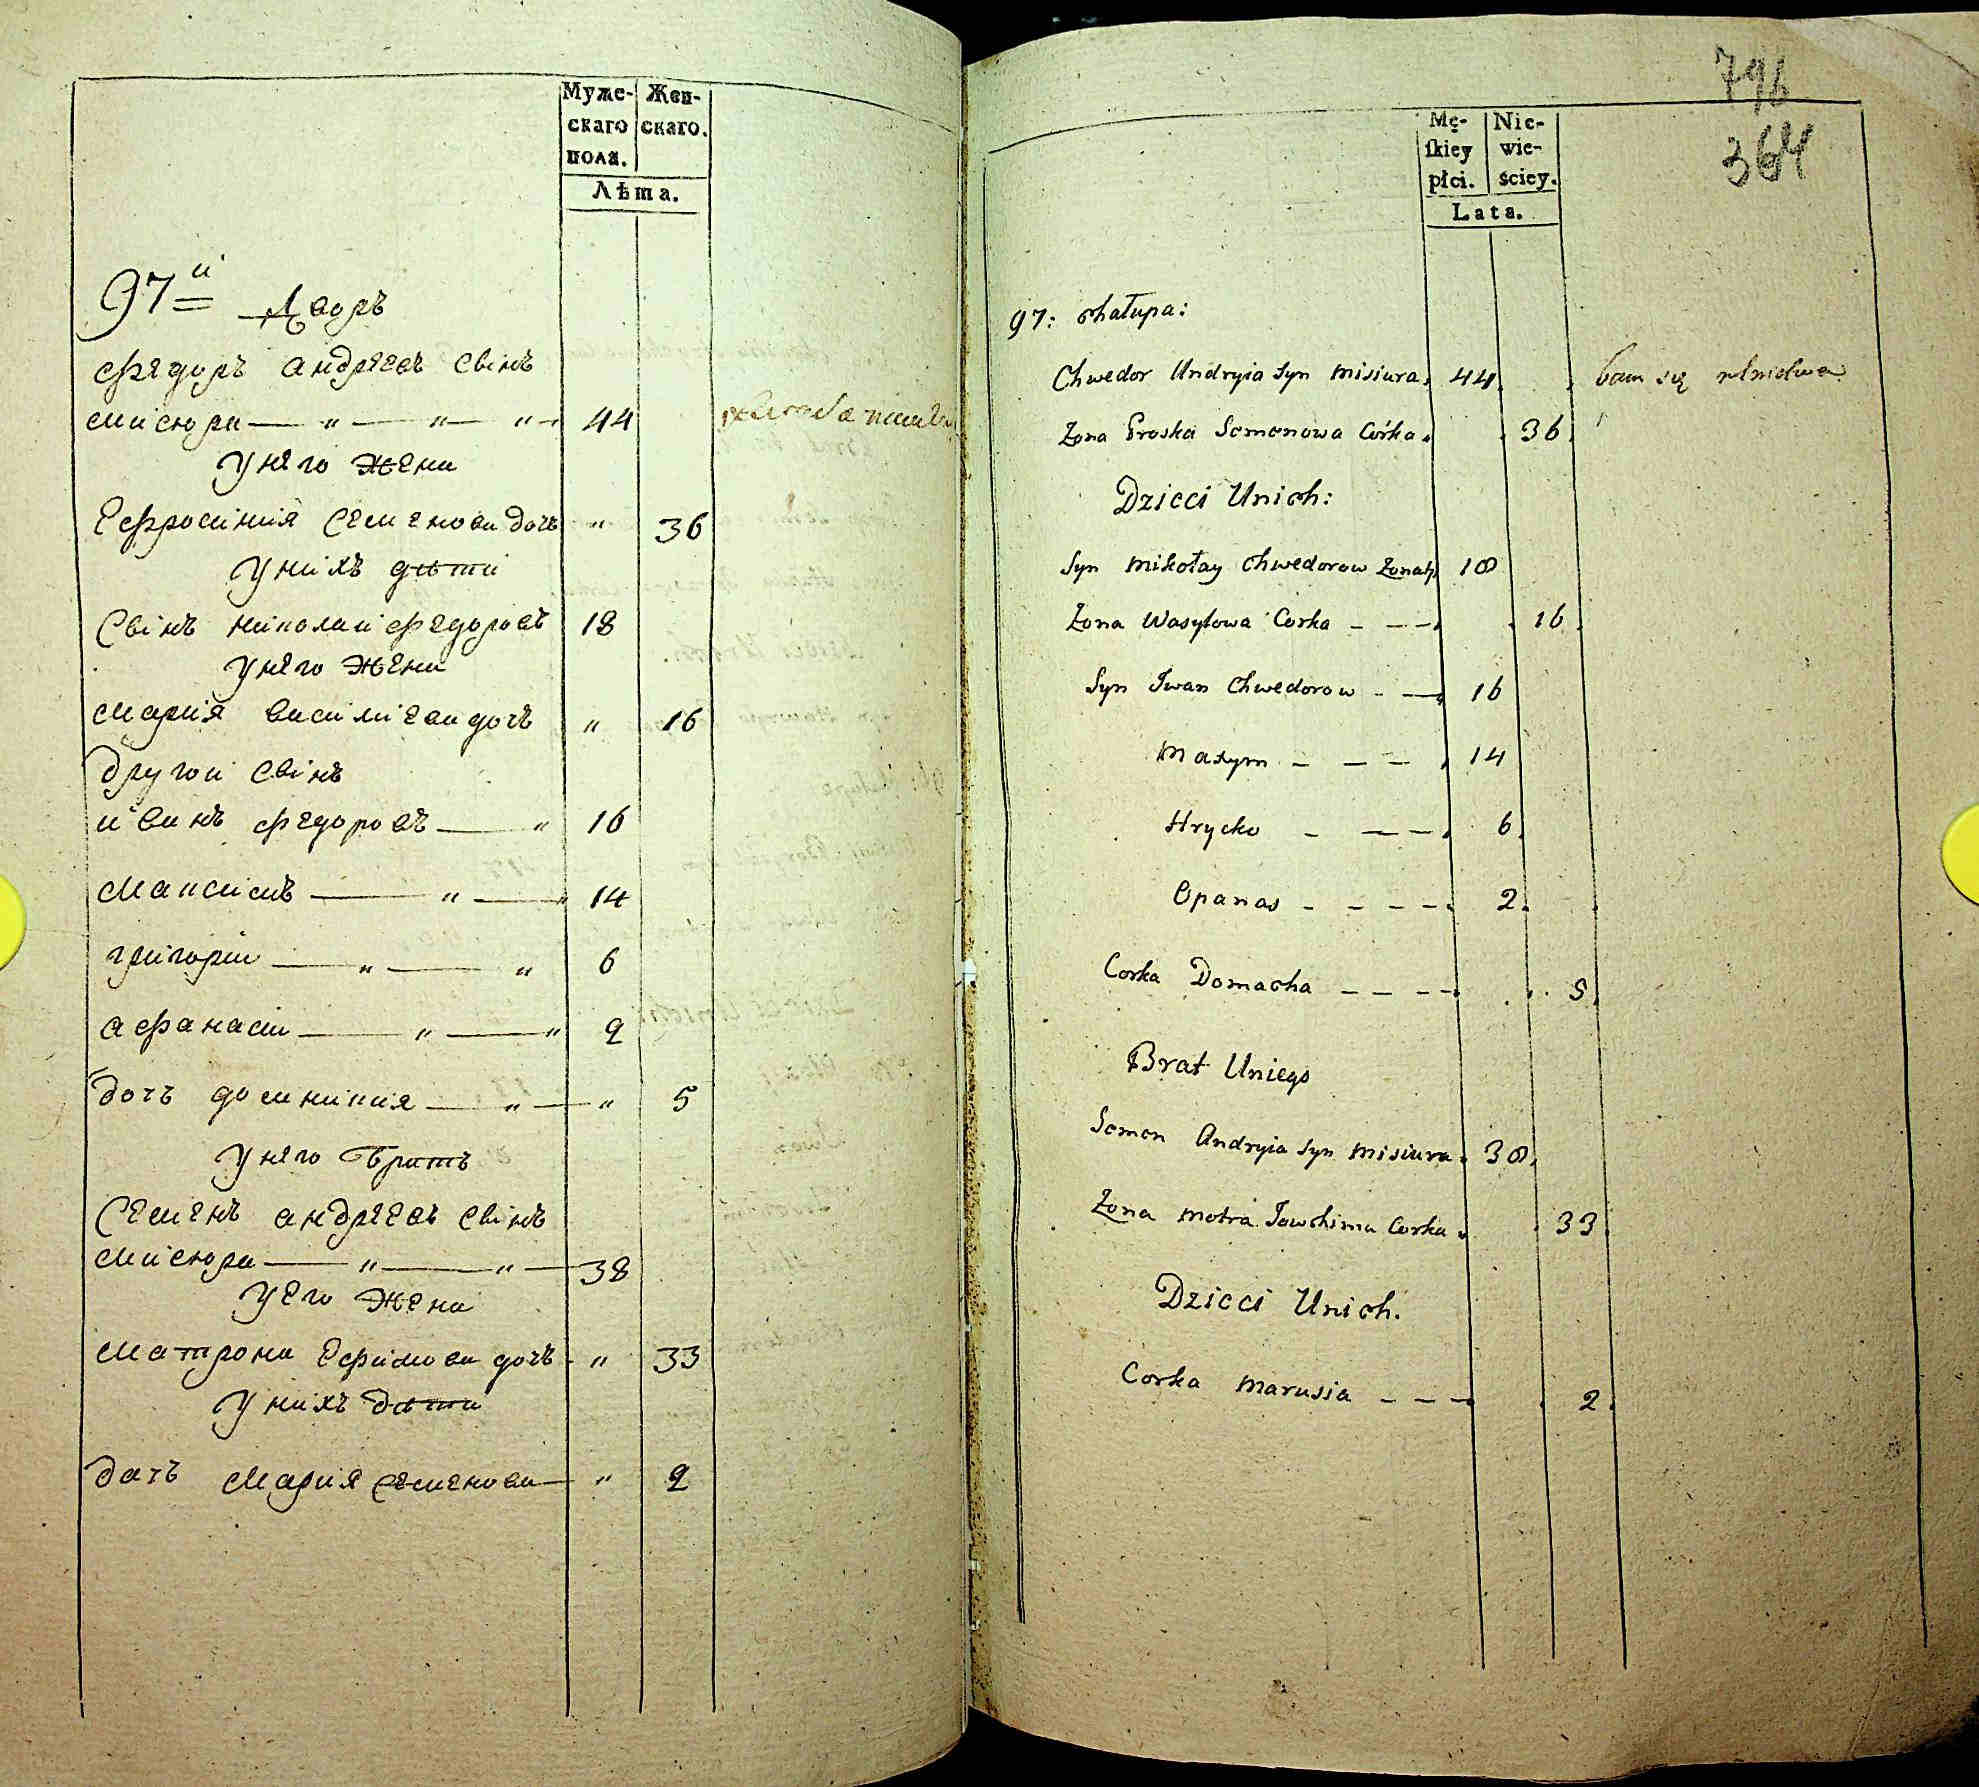 Муже-
скаго
пола.
Жен-
скаго.
Лѣта.
97й Дворъ
Федоръ андреевъ Свінъ
Мисюра — " — " — " 44
У него жена
Ефросиния Семенова дочь " 36
У нихъ дѣти
Свінъ николай федоровъ 18
У него жена
Мария василіева дочь " 16
другой Свінъ
иванъ федоровъ — " 16
Максимъ — " — 14
григорій — " — " 6
афанасій — " — " 2
дочь домникия — " — " 5
У него братъ
Семенъ андреевъ свінъ
Мисюра — " — " — 38
У его жена
Матрона Ефимова дочь " 33
У нихъ дѣти
дочь Мария семенова — " 2
796
364
Mę-
ſkiey
płci.
Nie-
wie-
ściey.
Lata.
97: chałupa:
Chwedor Undryia Syn Misiura 44
Żona Proska Semenowa Córka 36
Dzieci Unich:
Syn Mikołay Chwedorow Żonaty 18
Żona Wasylowa Corka - - - 16
Syn Iwan Chwedorow - — 16
Maxym - - - 14
Hrycko - — - 6
Opanas - - - - 2
Corka Domacha - - - - 5
Brat Uniego
Semen Andryia Syn Misiura 38
Żona Motra Jowchima Corka 33
Dzieci Unich.
Corka Marusia - - - 2